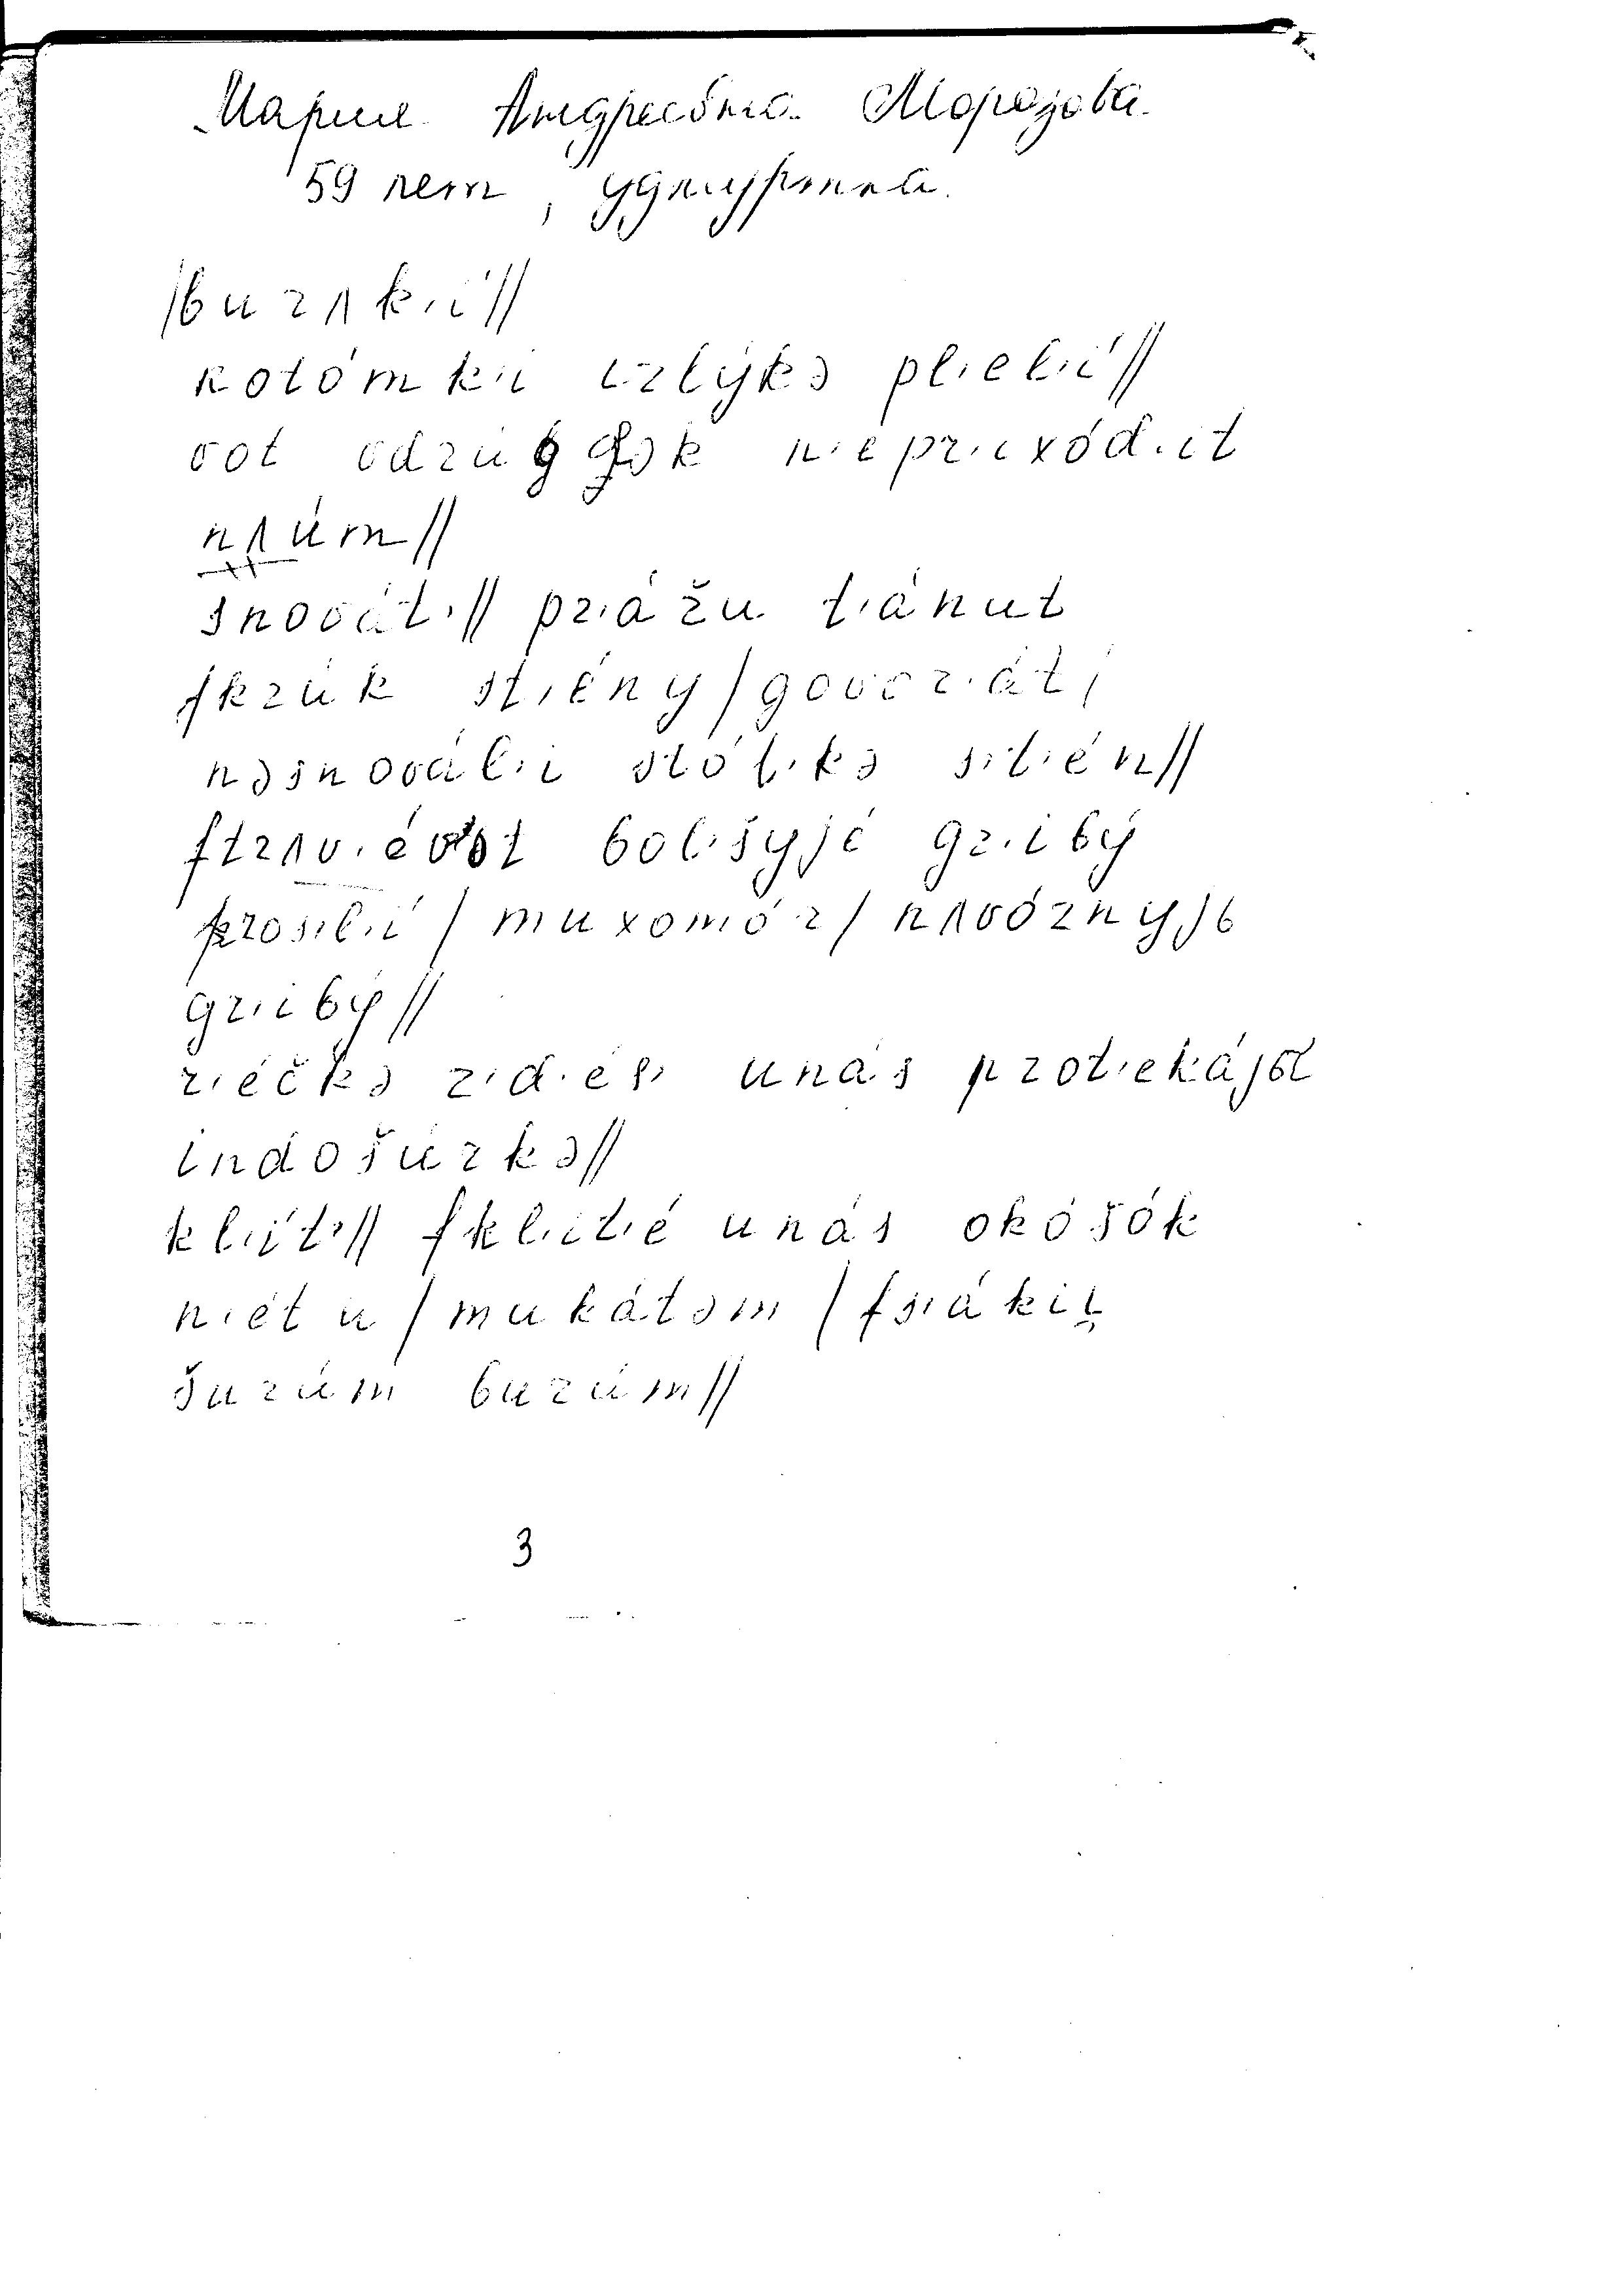 Мария Андреевна Морозова.
59 лет, удмуртка.
/burʌk·í//
kotómk·i izlýkə pl·el·í//
vot odzú k n·epr·ixód·it
nʌúm//
snovát·// pr·ážu t·ánut
fkrúk st·ény/govor·át/
nəsnovál·i stól·kə s·t·én//
ftrʌv·é vot bol·šyjé gr·ibý
kros·l·í/muxomór/nʌvóznyjь
gr·ibý//
r·éčkə z·d·és· unás prot·ekájət
indošúrkə//
kl·ít·// fkl·ít·é unás okóšók
n·étu/mukátəm/fs·ák·i
šurúm burúm//
3